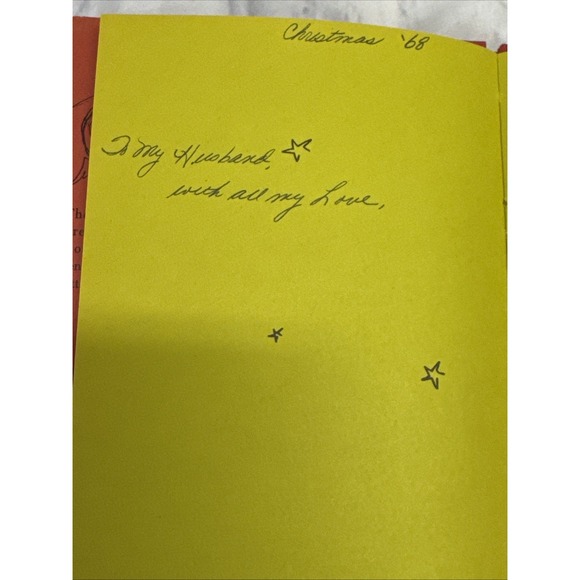 Christmas '68
To My Husband,
with all my Love,